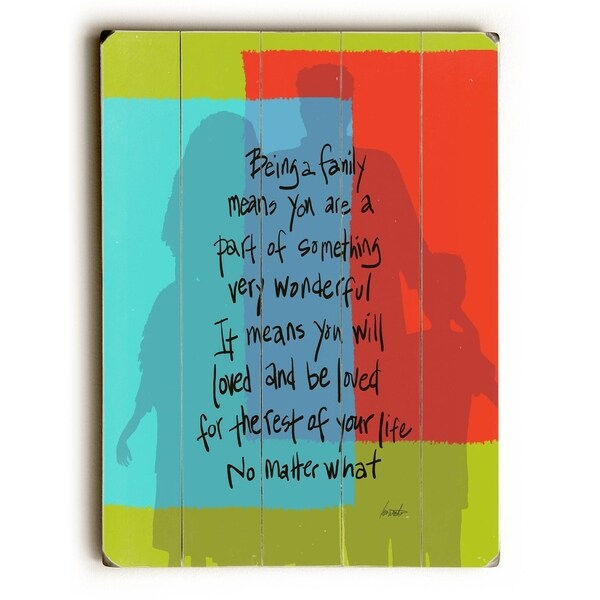 Being a family
means you are a
part of something
very wonderful
It means you will
loved and be loved
for the rest of your life
No matter what